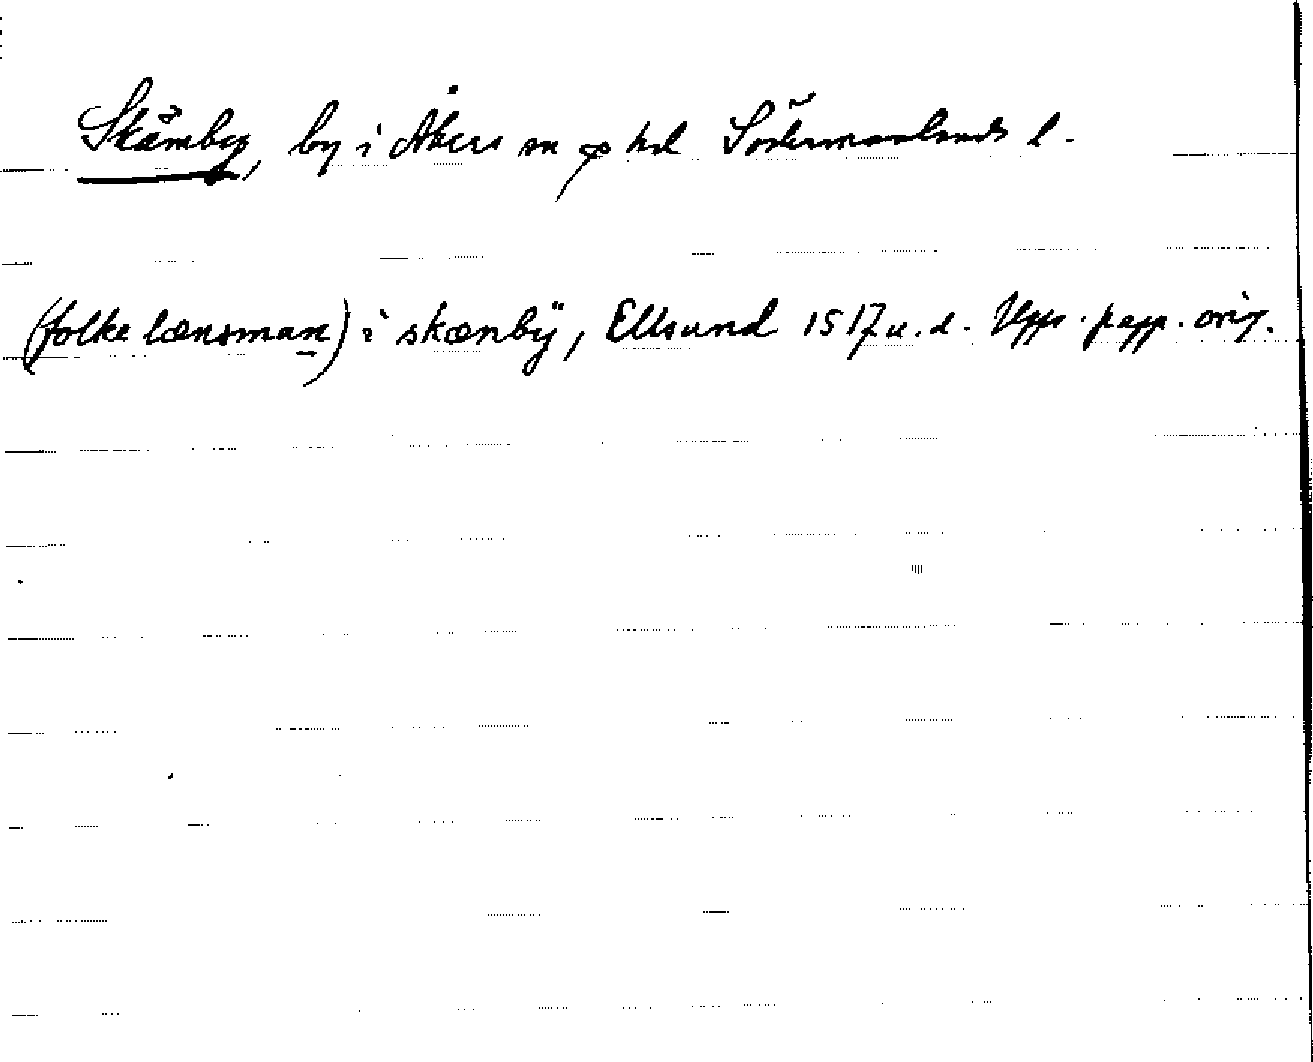 Skämby, by i Åkers sn o hd Södermanlands l.
(folke lænsman) i skænbÿ, Ellsund 1517 u. d. Upps. papp. orig.